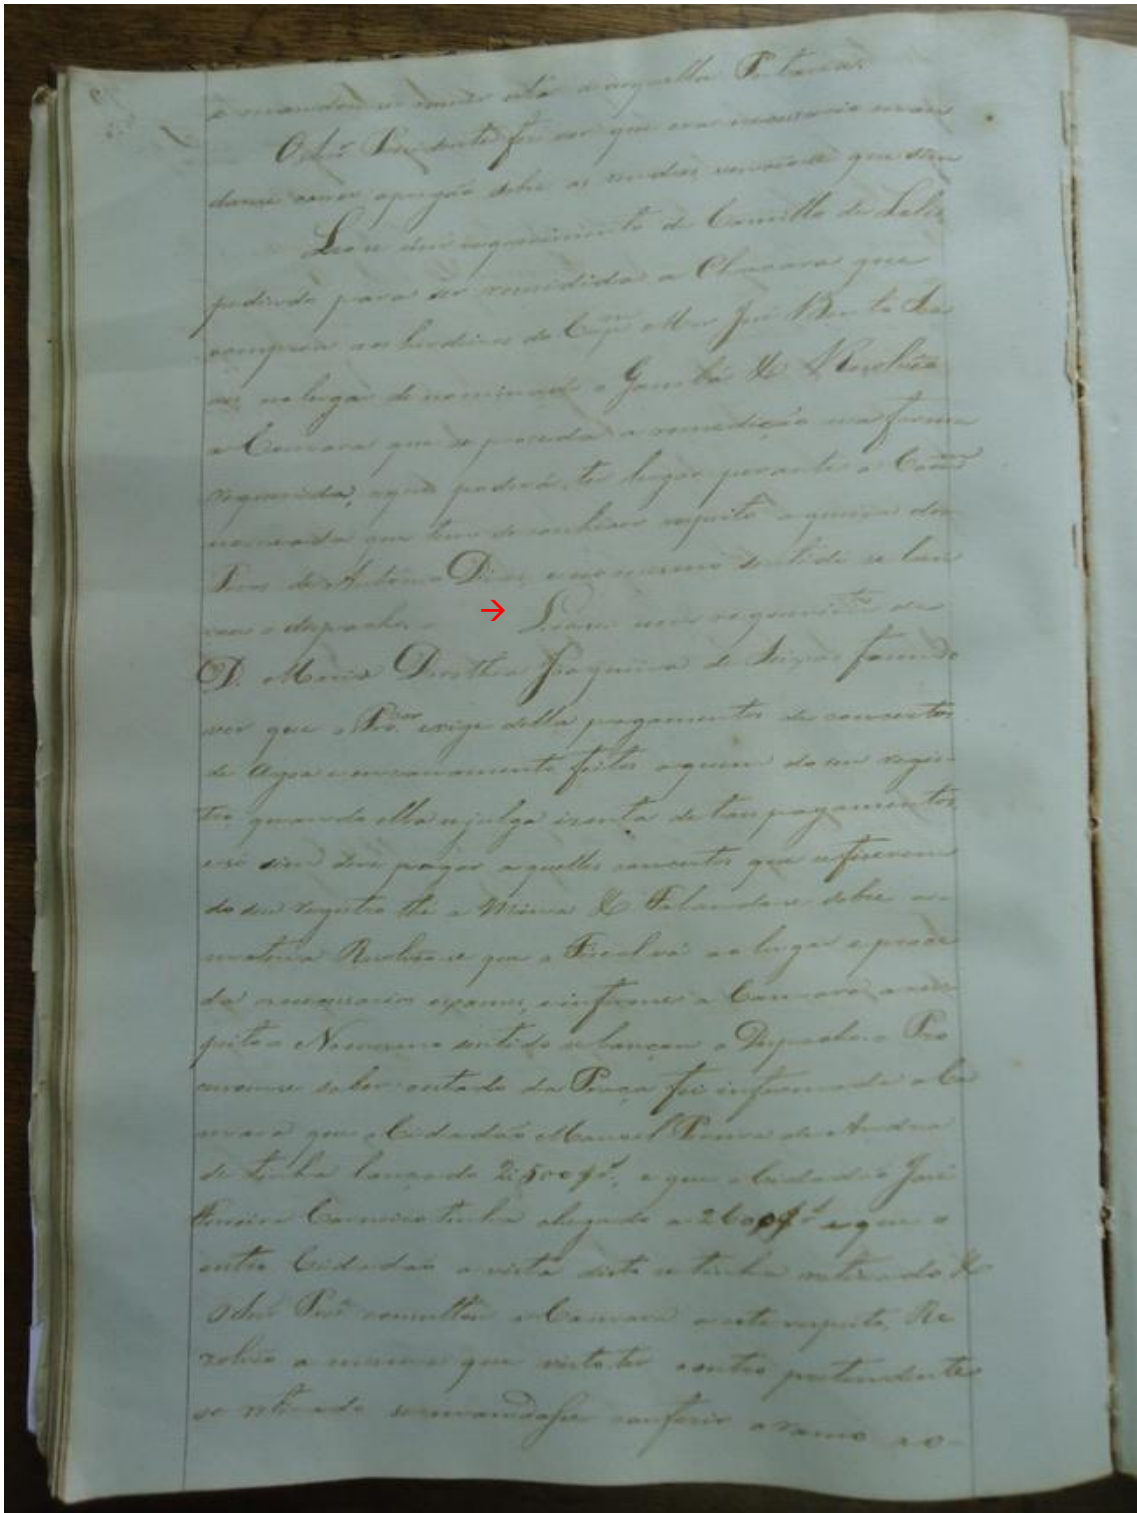 e mandou se  aquella Portaria.
O Snr. Presidente fez ver que era necessario man
dar-se  sobre as  que
Leo-se hum requerimento de Camillo de Lelis
pedindo para ser remidida a Chacara que
comprou aos herdeiros do Cap.m Mor José Bento Soa
res no lugar denominado o Gambá & Resolvêo
a Camara que se proceda a remedição na forma
requerida, a qual poderá ter lugar perante a Com.am
nomeada que tem de conhecer respeito a queixa dos
Povos de Antonio Dias, e no mesmo sentido se lan
çou o despacho. Leo-se um requerim.to de
D. Maria Dorothea Joaquina de Seixas fasendo
ver que o Pro.cor exige della pagamentos de concertos
de Agoa e encanamento feitos aquem do seu regis-
tro, quando ella se julga isenta de taes pagamentos
e só sim deve pagar aquelles concertos que se fiserem
do seu registro thé a Mina & Falando-se sobre a
materia Resolveo-se que o Fiscal vá ao lugar e proce
da a necessario exame, e informe a Camara a res-
peito e No mesmo sentido se lançou o Despacho. Pro
curou-se saber o estado da Praça foi informada a Ca
mara que o Cidadão Manoel  de Andra
de tinha lançado 2:500$, e que o Cidadão José
Ferreira Carneiro tinha chegado a 2600$ e que o
outro Cidadão a vista disto se tinha retirado &
O Snr. Prese consultou a Camara a este respeito, Re
solvêo a mesma que visto ter o outro pretendente
se retirado se mandasse conferir o ramo ao